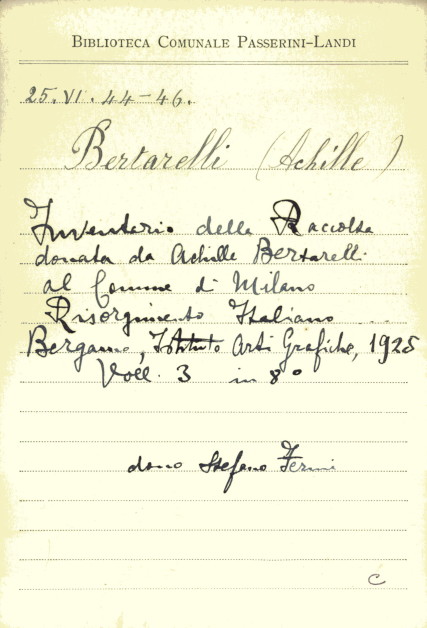 BIBLIOTECA COMUNALE PASSERINI-LANDI
25. VI. 44-46.
Bertarelli (Achille)
Inventario della Raccolta
donata da Achille Bertarelli
al Comune di Milano
Risorgimento Italiano
Bergamo, Istituto Arti Grafiche, 1925
Voll. 3 in 8°
dono Stefano Fermi
C